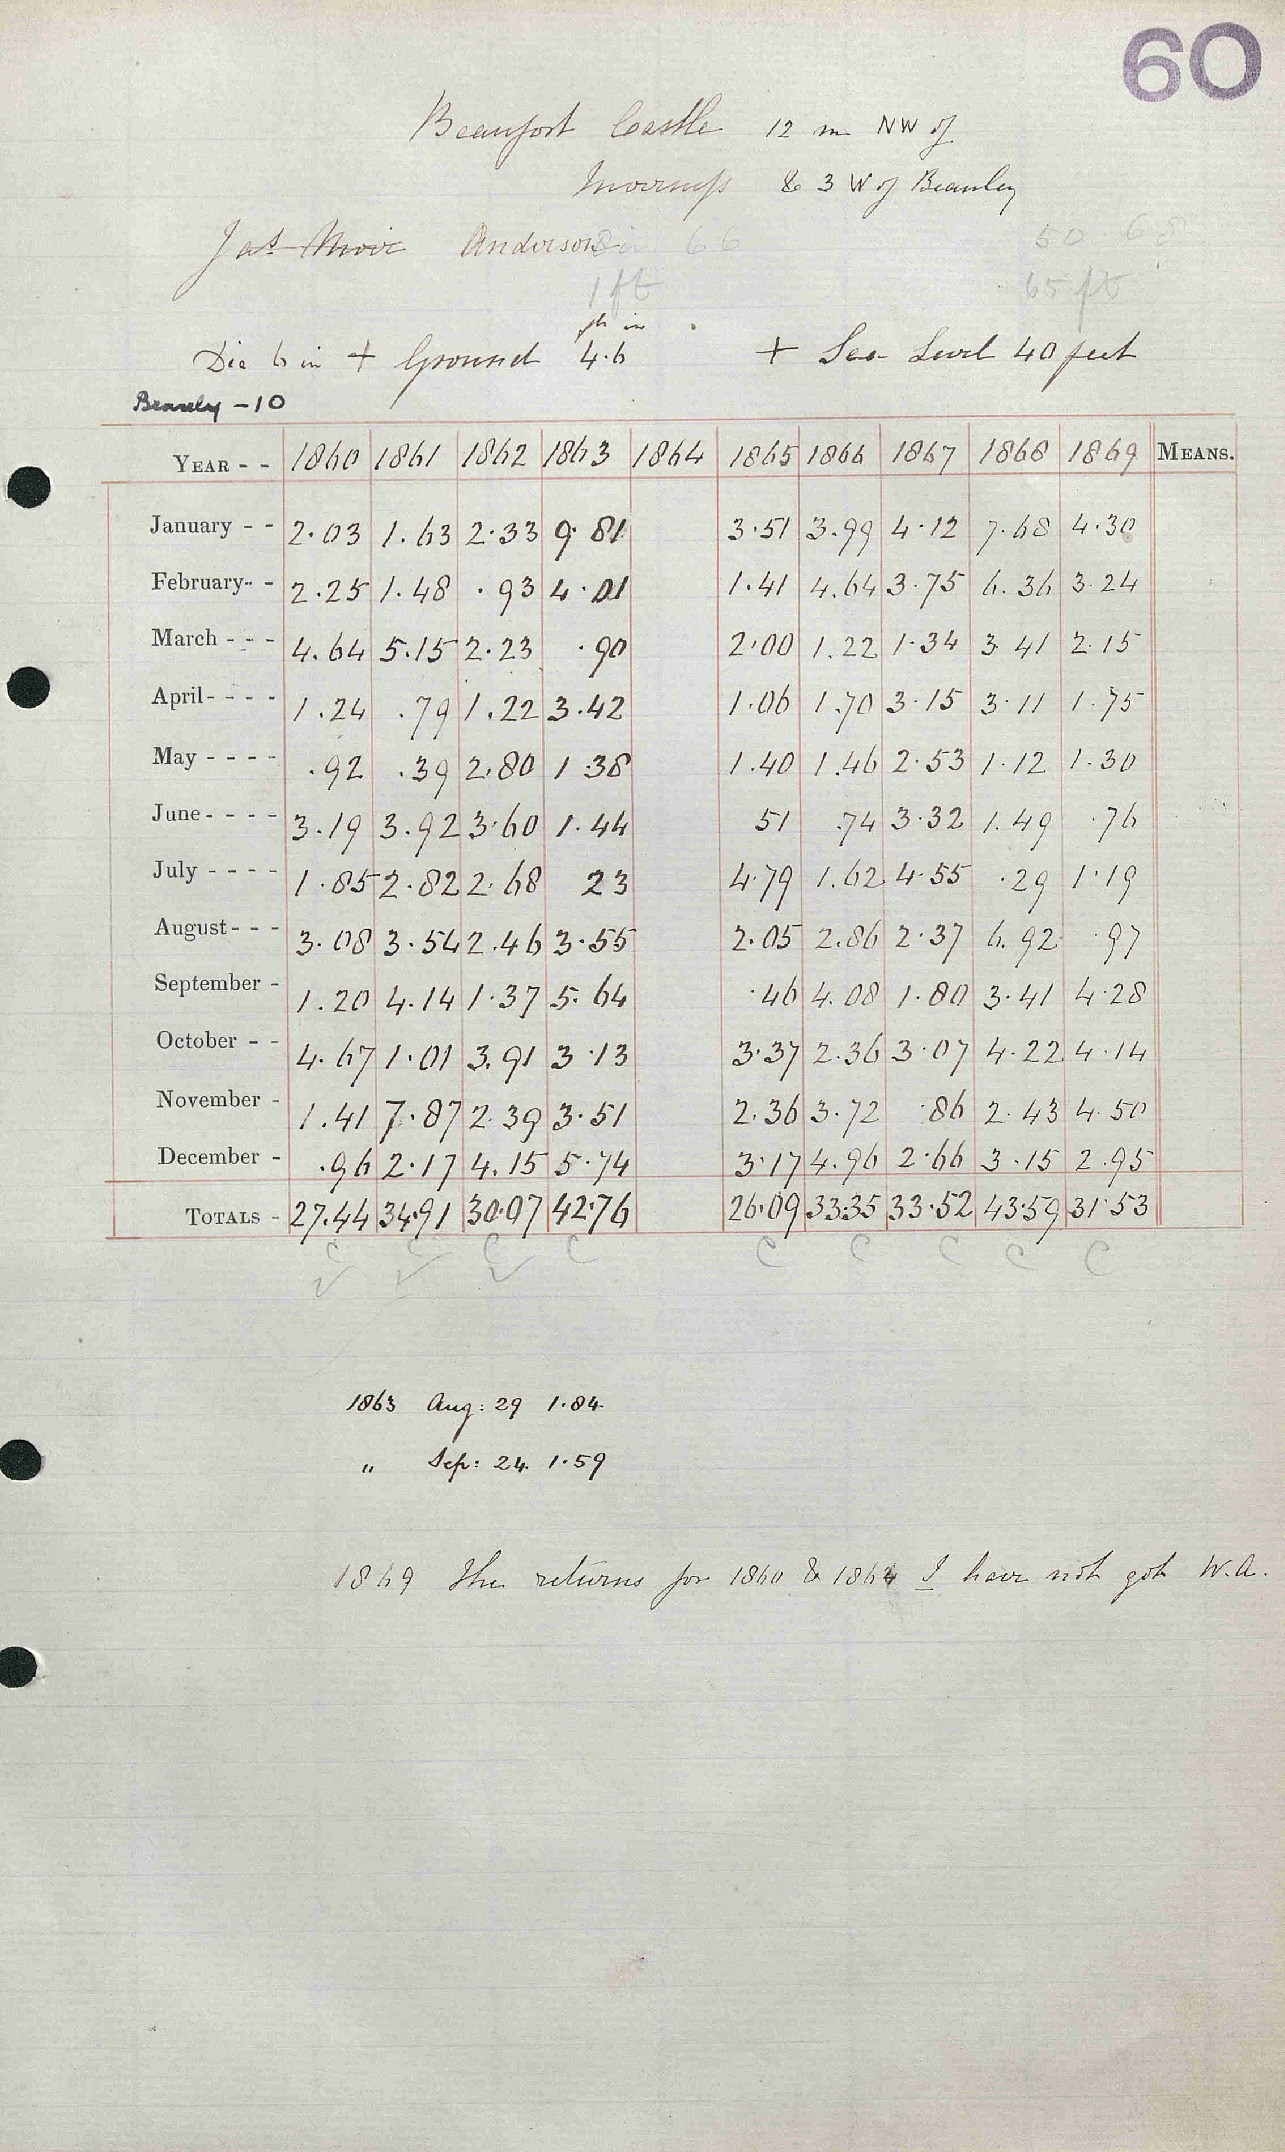 60
Beaufort Castle 12 m NW of
Inverness & 3 W of Beauley
Jas Moir Anderson 66 50 68
1 ft 65 ft
ft in
Dia 6 in + Ground 4.6 + Sea Level 40 feet
Beauly - 10
YEAR - - 1860 1861 1862 1863 1864 1865 1866 1867 1868 1869 MEANS.
January - - 2.03 1.63 2.33 9.81 3.51 3.99 4.12 7.68 4.30
February - - 2.25 1.48 .93 4.01 1.41 4.64 3.75 6.36 3.24
March - - - 4.64 5.15 2.23 .90 2.00 1.22 1.34 3.41 2.15
April - - - - 1.24 .79 1.22 3.42 1.06 1.70 3.15 3.11 1.75
May - - - - .92 .39 2.80 1.38 1.40 1.46 2.53 1.12 1.30
June - - - - 3.19 3.92 3.60 1.44 51 .74 3.32 1.49 .76
July - - - - 1.85 2.82 2.68 23 4.79 1.62 4.55 .29 1.19
August - - - 3.08 3.54 2.46 3.55 2.05 2.86 2.37 6.92 .97
September - 1.20 4.14 1.37 5.64 .46 4.08 1.80 3.41 4.28
October - - 4.67 1.01 3.91 3.13 3.37 2.36 3.07 4.22 4.14
November - 1.41 7.87 2.39 3.51 2.36 3.72 .86 2.43 4.50
December - .96 2.17 4.15 5.74 3.17 4.96 2.66 3.15 2.95
TOTALS - 27.44 34.91 30.07 42.76 26.09 33.35 33.52 43.59 31.53
C C C C C C C C C
1863 Aug: 29 1.84
" Sep: 24 1.59
1869 The returns for 1860 & 1864 I have not got W.A.